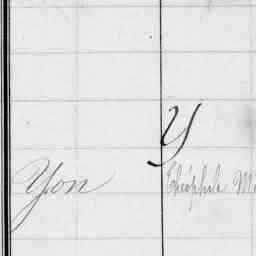 Y
Yon Théophile M